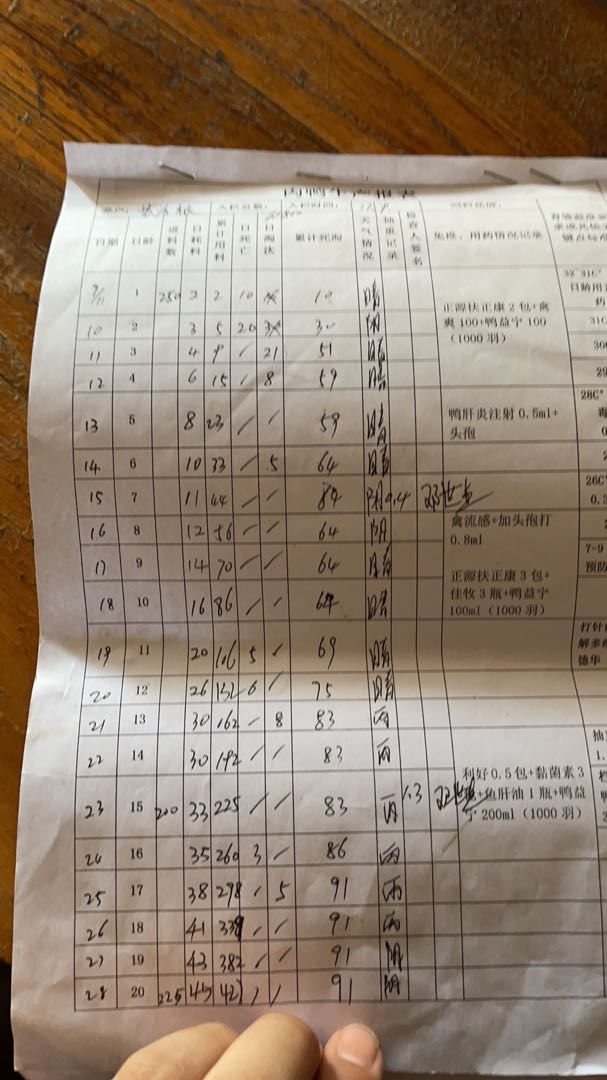 肉鸭生产报表
入栏总数： 入栏时间： 饲料总用：
日期 日龄 进料数 日耗料 累计用料 日死亡 日淘汰 累计死淘 天气情况 抽重记录 检查人签名 免疫、用药情况记录
9/11 1 250 2 2 10 10 晴 正源扶正康 2 包+禽爽 100+鸭益宁 100（1000 羽） 32°31C°
10 2 3 5 20 30 阴 31C
11 3 4 9 / 21 51 晴
12 4 6 15 / 8 59 晴 29
13 5 8 23 / / 59 晴 鸭肝炎注射 0.5ml+头孢 28C°
14 6 10 33 / 5 64 晴
15 7 11 44 / / 84 阴 0.4 26C°
16 8 12 56 / / 64 阴 禽流感+加头孢打 0.8ml
17 9 14 70 / / 64 晴 7-9 预防
18 10 16 86 / / 64 晴 正源扶正康 3 包+佳牧 3 瓶+鸭益宁 100ml（1000 羽）
19 11 20 106 5 / 69 晴 打针 解多 德华
20 12 26 132 6 / 75 晴
21 13 30 162 / 8 83 雨
22 14 30 192 / / 83 雨
23 15 200 33 225 / / 83 雨 1.3 利好 0.5 包+黏菌素 3 +鱼肝油 1 瓶+鸭益宁 200ml（1000 羽）
24 16 35 260 3 / 86 雨
25 17 38 298 / 5 91 雨
26 18 41 339 / / 91 雨
27 19 43 382 / / 91 阴
28 20 225 45 427 / / 91 阴